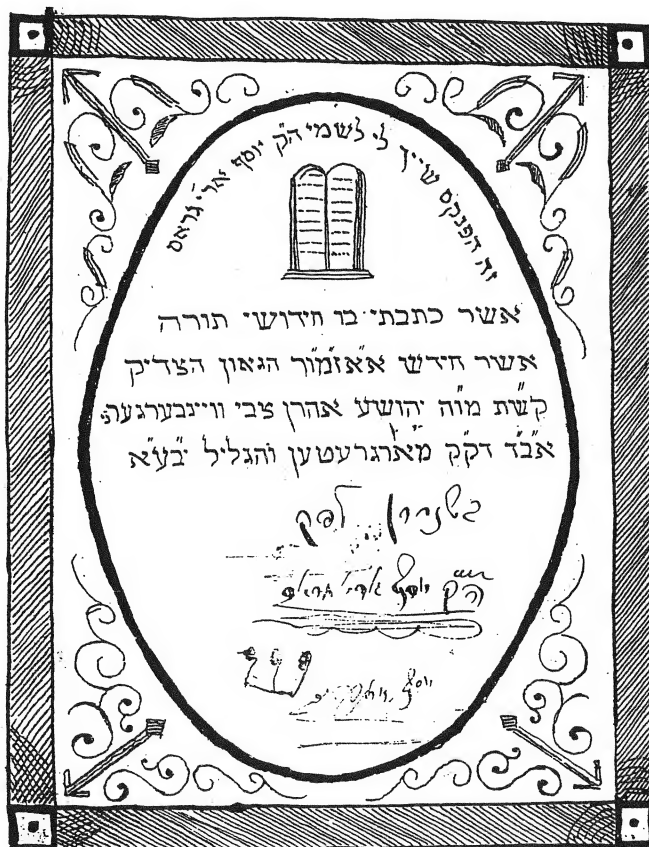 זה הפנקס שייך לי לשמי הק' יוסף ארי' גראס
אשר כתבתי בו חידושי תורה
אשר חידש אאזמ"ור הגאון הצדיק
קש"ת מו"ה יהושע אהרן צבי וויינבערגער
אב"ד דק"ק מארגרעטען והגליל יב"עא
לפק
הק' יוסף
יוסף